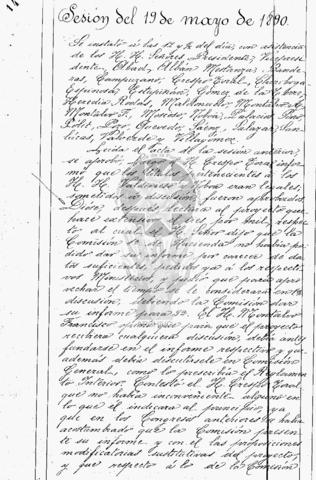 Sesión del 19 de mayo de 1890.
Se instaló á las 12 y ½ del día, con asistencia
de los H. H. Señores Presidente, Vicepresi-
dente, Abad, Albán Mestanza, Bande-
ras, Campuzano, Crespo Toral, Chiriboga,
Espinosa, Estupiñán, Gómez de la Torre,
Heredia Rodas, Maldonado, Montalvo A.
Montalvo F., Moscoso, Noboa, Palacios, Pino,
Pólit, Poso, Quevedo, Sáenz, Salazar, San-
lucas, Valverde y Villagómez.
Leída el acta de la sesión anterior,
se aprobó. El H. Crespo Toral infor-
mó que los títulos pertenecientes á los
H. H. Valdivieso y Noboa eran legales,
sometidos á discusión fueron aprobados.
Dióse, después, lectura al proyecto que
hace extensivo por Azul, respec-
to al cual el Señor dijo que la
Comisión 2ª de Hacienda no había po-
dido dar su informe por carecer de da-
tos suficientes, pedidos ya á los respecti-
vos Ministerios; pero que para apro-
vechar el tiempo se le considerara en 1ª
discusión, debiendo la Comisión dar
su informe para 2ª. El H. Montalvo
Francisco opinó que para que el proyecto
recibiera cualquiera discusión, debía antes
fundarse en el informe respectivo y que
además debía discutírsele en Comisión
General, como lo prescribía el Reglamen-
to Interior. Contestó el H. Crespo Toral
que no había inconveniente alguno en
lo que él indicara al principio, ya
que en los Congresos anteriores se había
acostumbrado que la Comisión presen-
te su informe y con él las proposiciones
modificatorias sustitutivas del proyecto,
y que respecto á lo de la Comisión